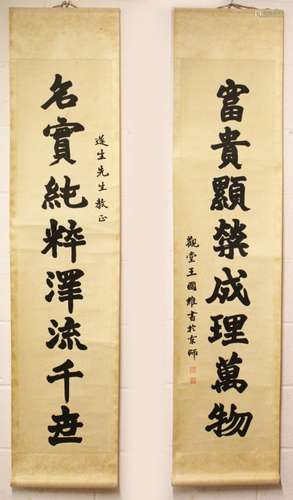 富貴顯榮成理萬物
觀堂王國維書於京師
蓬生先生教正
名實純粹澤流千世